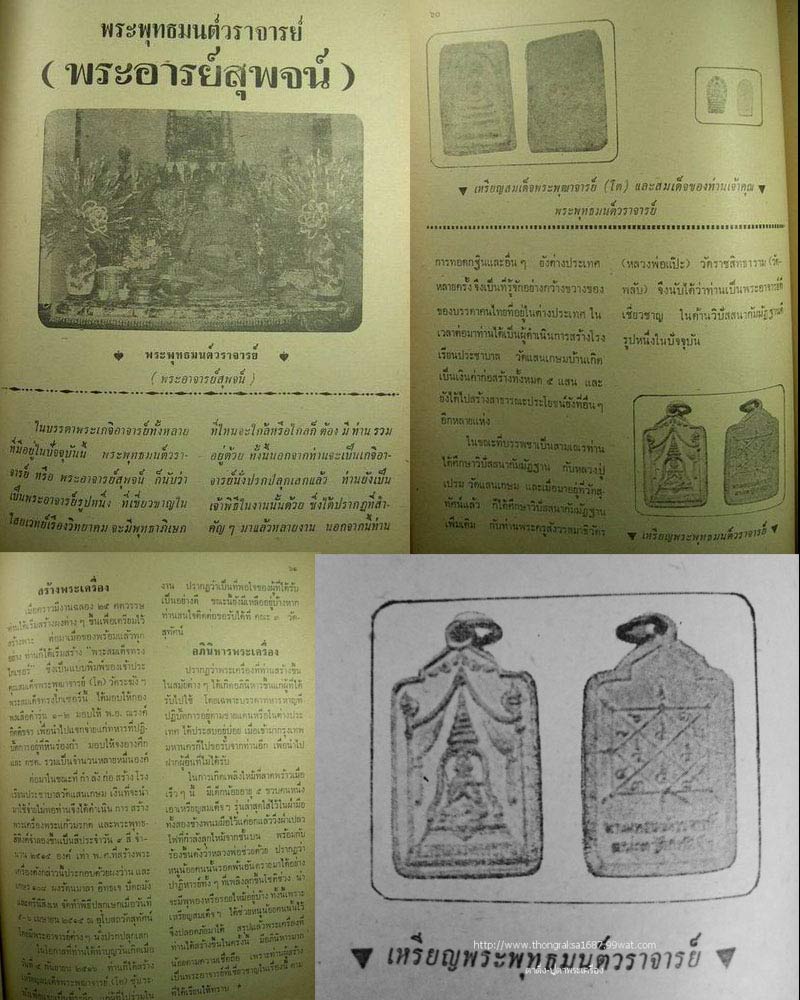 พระพุทธมนต์วราจารย์
(พระอารย์สุพจน์)
พระพุทธมนต์วราจารย์
(พระอาจารย์สุพจน์)
ในบรรดาพระเกจิอาจารย์ทั้งหลาย
ที่มีอยู่ในปัจจุบันนี้ พระพุทธมนต์วรา-
จารย์ หรือ พระอาจารย์สุพจน์ ก็นับว่า
เป็นพระอาจารย์รูปหนึ่ง ที่เชี่ยวชาญใน
ไสยเวทย์เรืองวิทยาคม จะมีพุทธาภิเษก
ที่ไหนจะใกล้หรือไกลก็ ต้อง มี ท่าน รวม
อยู่ด้วย ทั้งนี้นอกจากท่านจะเป็นเกจิอา-
จารย์นั่งปรกปลุกเสกแล้ว ท่านยังเป็น
เจ้าพิธีในงานนั้นด้วย ซึ่งได้ปรากฏที่สำ-
คัญ ๆ มาแล้วหลายงาน นอกจากนี้ท่าน
๖๐
เหรียญสมเด็จพระพุฒาจารย์ (โต) และสมเด็จของท่านเจ้าคุณ
พระพุทธมนต์วราจารย์
การทอดกฐินและอื่น ๆ ยังต่างประเทศ
หลายครั้ง จึงเป็นที่รู้จักอย่างกว้างขวางของ
ของบรรดาคนไทยที่อยู่ในต่างประเทศ ใน
เวลาต่อมาท่านได้เป็นผู้ดำเนินการสร้างโรง
เรียนประชาบาล วัดแสนเกษมบ้านเกิด
เป็นเงินค่าก่อสร้างทั้งหมด ๕ แสน และ
ยังได้ไปสร้างสาธารณะประโยชน์ยังที่อื่น ๆ
อีกหลายแห่ง
ในขณะที่บรรพชาเป็นสามเณรท่าน
ได้ศึกษาวิปัสสนากัมมัฏฐาน กับหลวงปู่
เปรม วัดแสนเกษม และเมื่อมาอยู่ที่วัดสุ-
ทัศน์แล้ว ก็ได้ศึกษาวิปัสสนากัมมัฏฐาน
เพิ่มเติม กับท่านพระครูสังวรสมาธิวัตร
(หลวงพ่อแป๊ะ) วัดราชสิทธาราม (วัด-
พลับ) จึงนับได้ว่าท่านเป็นพระอาจารย์ที่
เชี่ยวชาญ ในด้านวิปัสสนากัมมัฏฐานที่
รูปหนึ่งในปัจจุบัน
เหรียญพระพุทธมนต์วราจารย์
๖๑
สร้างพระเครื่อง
เมื่อคราวมีงานฉลอง ๒๕ ศตวรรษ
ท่านได้เริ่มสร้างผงต่าง ๆ ขึ้นเพื่อเตรียมไว้
สร้างพระ ต่อมาเมื่อของพร้อมแล้วทุก
อย่าง ท่านก็ได้เริ่มสร้าง "พระสมเด็จทรง
ไกเซอร์" ซึ่งเป็นแบบพิมพ์ของเจ้าประ
คุณสมเด็จพระพุฒาจารย์ (โต) วัดระฆัง ฯ
พระสมเด็จทรงไกเซอร์นี้ ได้มอบให้กอง
และ ตชด. รวมเป็นจำนวนหลายหมื่นองค์
ต่อมาในขณะที่ กำ ลัง ก่อ สร้าง โรง
เรียนประชาบาลวัดแสนเกษม เงินที่จะนำ
มาใช้จ่ายไม่พอท่านจึงได้ดำเนิน การ สร้าง
งาน ปรากฏว่าเป็นที่พอใจของผู้ที่ได้รับ
เป็นอย่างดี ขณะนี้ยังมีเหลืออยู่บ้างหาก
ท่านสนใจติดต่อขอรับได้ที่ คณะ ๑ วัด-
สุทัศน์
อภินิหารพระเครื่อง
ปรากฏว่าพระเครื่องที่ท่านสร้างขึ้น
ในสมัยต่าง ๆ ได้เกิดอภินิหารขึ้นแก่ผู้ที่ได้
รับไปใช้ โดยเฉพาะบรรดาทหารหาญที่
ปฏิบัติการอยู่ตามชายแดนหรือในต่างประ
เทศ ได้ประสบอยู่บ่อย เมื่อเข้ามากรุงเทพ
มหานครก็ไปขอรับจากท่านอีก เพื่อนำไป
ฝากผู้อื่นที่ไม่ได้รับ
ในการเกิดเพลิงไหม้ที่ลาดพร้าวเมื่อ
เร็ว ๆ นี้ มีเด็กน้อยอายุ ๕ ขวบคนหนึ่ง
เหรียญพระพุทธมนต์วราจารย์
http://www.thongraksa1687.99wat.com